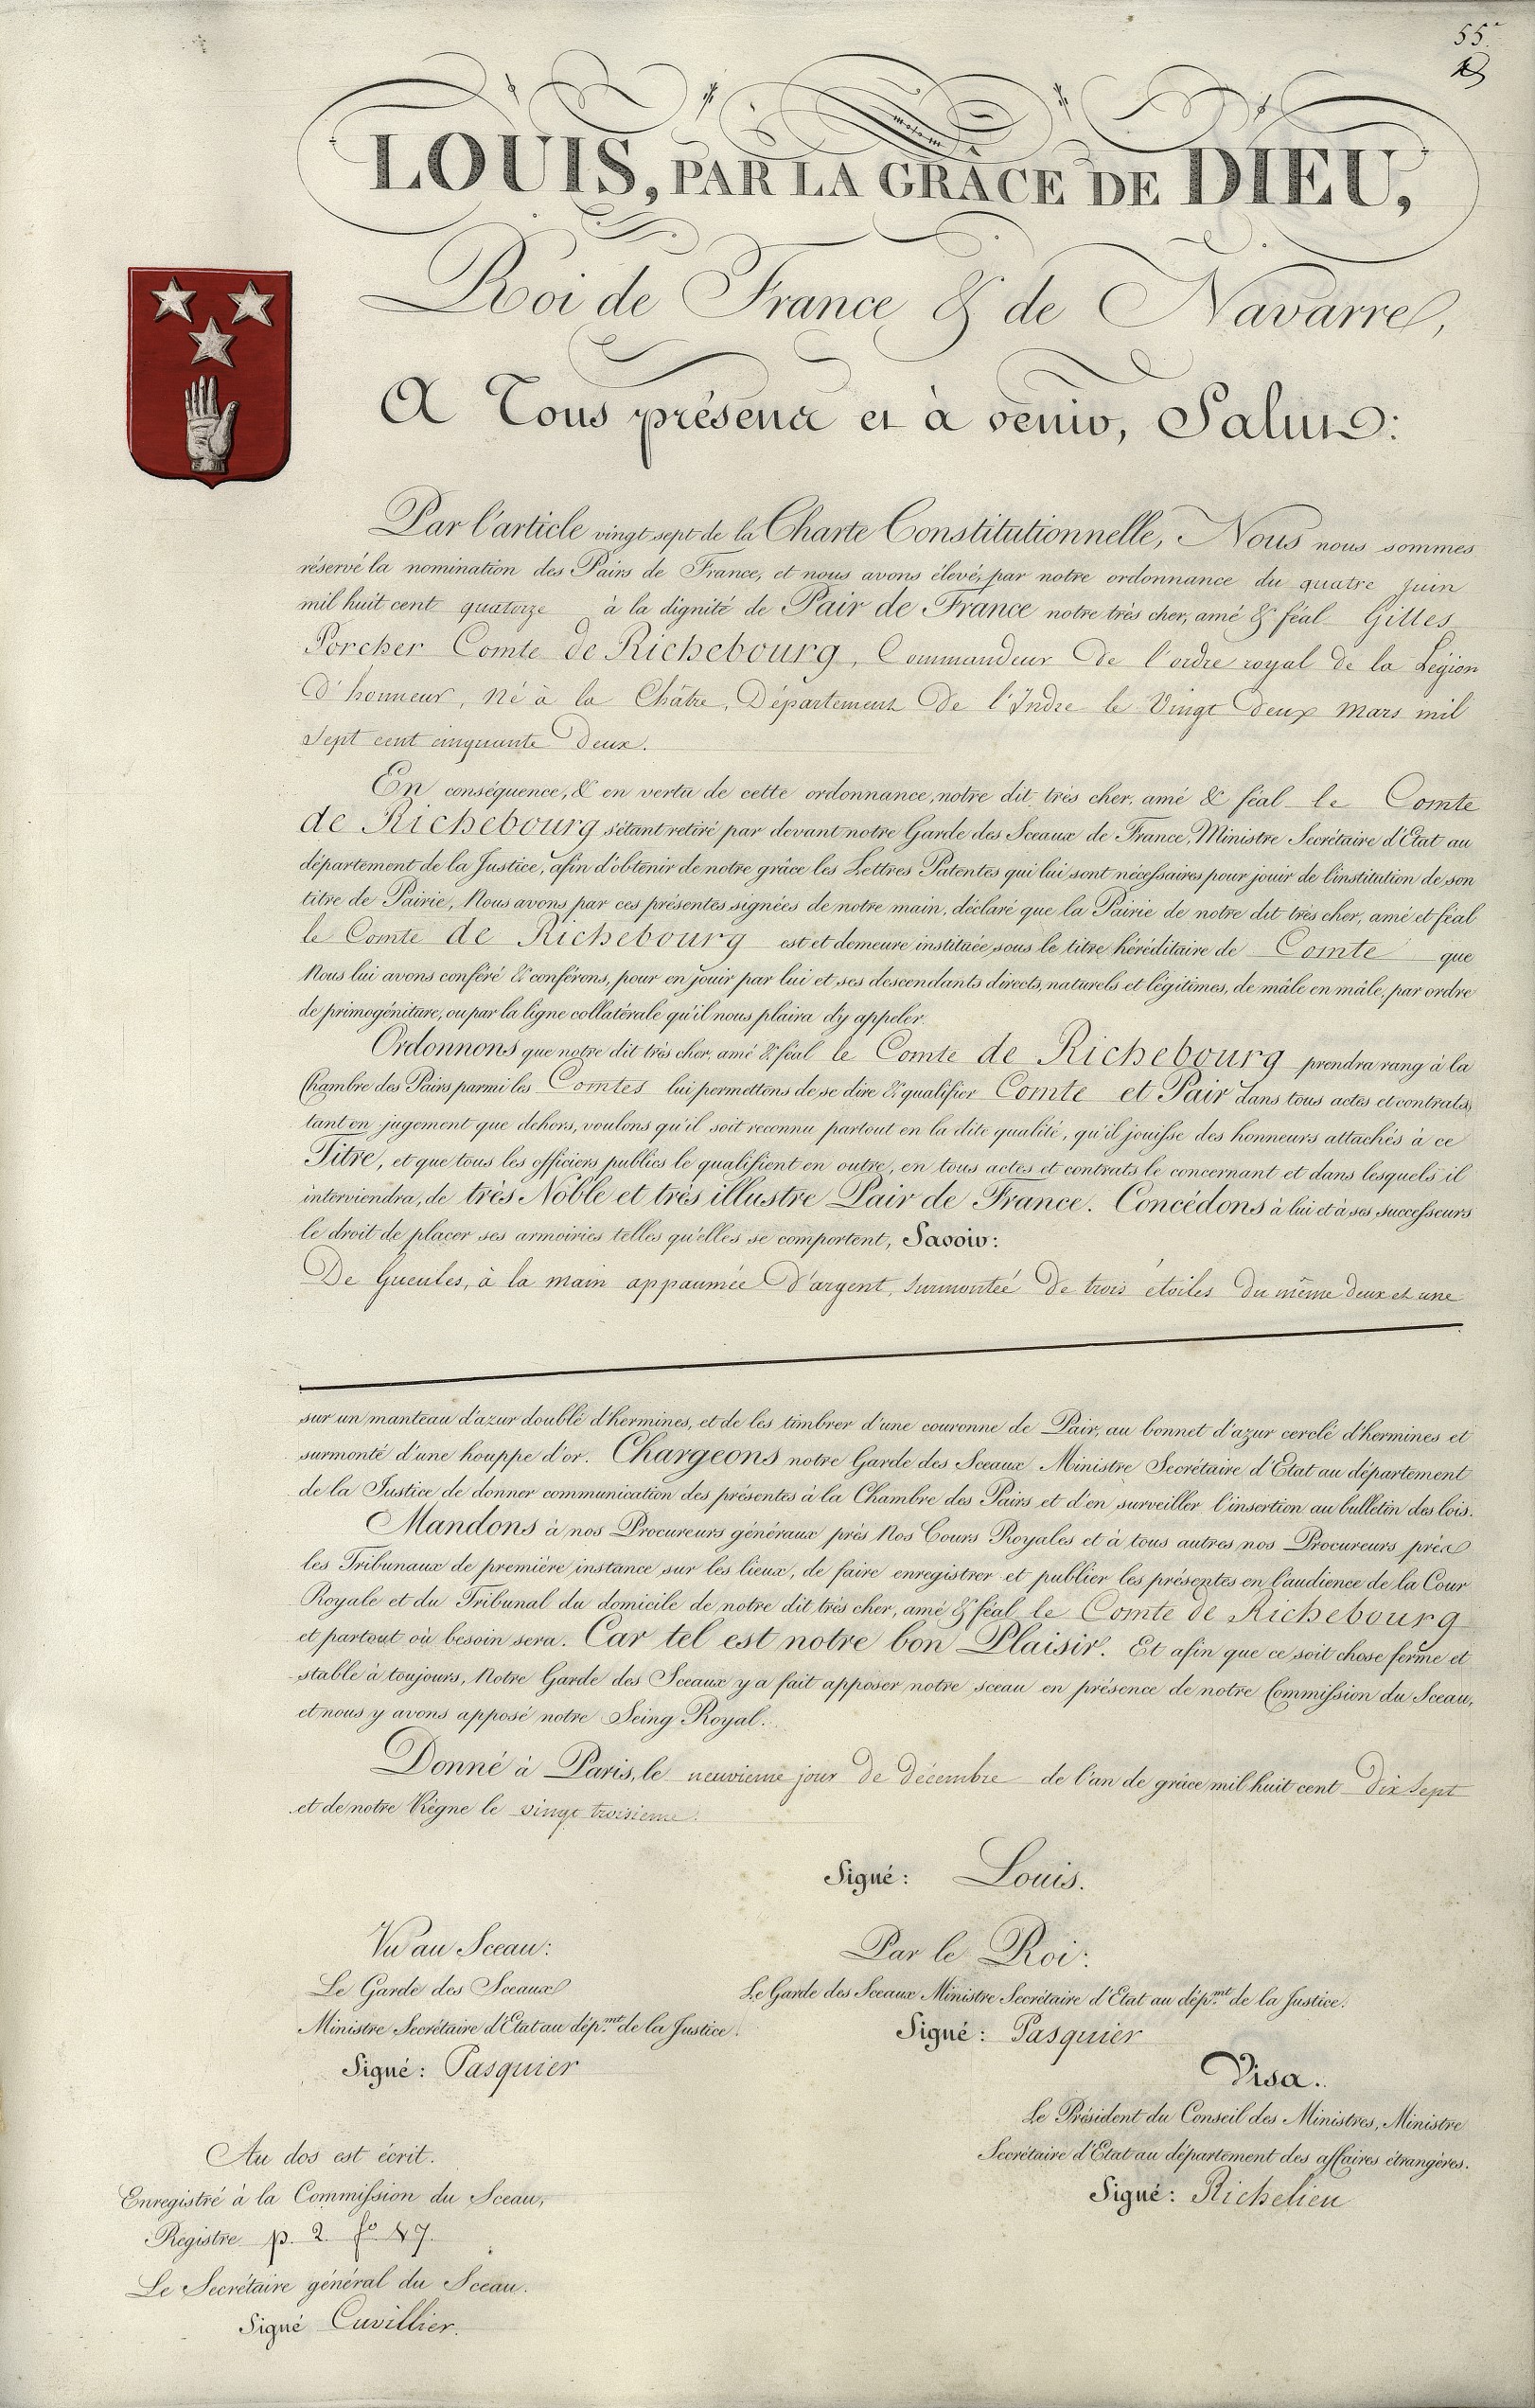 55.
LOUIS, PAR LA GRÂCE DE DIEU,
Roi de France & de Navarre,
A Tous présens et à venir, Salut:
Par l'article vingt sept de la Charte Constitutionnelle, Nous nous sommes
réservé la nomination des Pairs de France, et nous avons élevé, par notre ordonnance du quatre Juin
mil huit cent quatorze à la dignité de Pair de France notre très cher, amé & féal Gilles
Porcher Comte de Richebourg, Commandeur de l'ordre royal de la Légion
d'honneur, Né à la Châtre, Département de l'Indre le Vingt deux Mars mil
Sept cent cinquante Deux.
En conséquence, & en vertu de cette ordonnance, notre dit très cher, amé & féal le Comte
de Richebourg s'étant retiré par devant notre Garde des Sceaux de France, Ministre Secrétaire d'Etat au
département de la Justice, afin d'obtenir de notre grâce les Lettres Patentes qui lui sont nécessaires pour jouir de l'institution de son
titre de Pairie, Nous avons par ces présentes signées de notre main, déclaré que la Pairie de notre dit très cher, amé et féal
le Comte de Richebourg est et demeure instituée sous le titre héréditaire de Comte que
Nous lui avons conféré & conférons, pour en jouir par lui et ses descendants directs, naturels et légitimes, de mâle en mâle, par ordre
de primogéniture, ou par la ligne collatérale qu'il nous plaira d'y appeler.
Ordonnons que notre dit très cher, amé & féal le Comte de Richebourg prendra rang à la
Chambre des Pairs parmi les Comtes lui permettons de se dire & qualifier Comte et Pair dans tous actes et contrats,
tant en jugement que dehors, voulons qu'il soit reconnu partout en la dite qualité, qu'il jouisse des honneurs attachés à ce
Titre, et que tous les officiers publics le qualifient en outre, en tous actes et contrats le concernant et dans lesquels il
interviendra, de très Noble et très illustre Pair de France. Concédons à lui et à ses successeurs
le droit de placer ses armoiries telles qu'elles se comportent, Savoir:
De Gueules, à la main appaumée d'argent, Surmontée de trois étoiles du même deux et une
sur un manteau d'azur doublé d'hermines, et de les timbrer d'une couronne de Pair, au bonnet d'azur cerclé d'hermines et
surmonté d'une houppe d'or. Chargeons notre Garde des Sceaux Ministre Secrétaire d'Etat au département
de la Justice de donner communication des présentes à la Chambre des Pairs et d'en surveiller l'insertion au bulletin des lois.
Mandons à nos Procureurs généraux près Nos Cours Royales et à tous autres nos Procureurs près
les Tribunaux de première instance sur les lieux, de faire enregistrer et publier les présentes en l'audience de la Cour
Royale et du Tribunal du domicile de notre dit très cher, amé & féal le Comte de Richebourg
et partout où besoin sera. Car tel est notre bon Plaisir. Et afin que ce soit chose ferme et
stable à toujours, Notre Garde des Sceaux y a fait apposer notre sceau en présence de notre Commission du Sceau,
et nous y avons apposé notre Seing Royal.
Donné à Paris, le neuvième jour de décembre de l'an de grâce mil huit cent Dix Sept
et de notre Règne le vingt troisième.
Signé: Louis.
Vu au Sceau:
Le Garde des Sceaux
Ministre Secrétaire d'Etat au dép.mt de la Justice.
Signé: Pasquier
Par le Roi:
Le Garde des Sceaux Ministre Secrétaire d'Etat au dép.mt de la Justice.
Signé: Pasquier
Visa.
Le Président du Conseil des Ministres, Ministre
Secrétaire d'Etat au département des affaires étrangères.
Signé: Richelieu
Au dos est écrit.
Enregistré à la Commission du Sceau,
Registre p. 2 fo 47.
Le Secrétaire général du Sceau.
Signé Cuvillier.